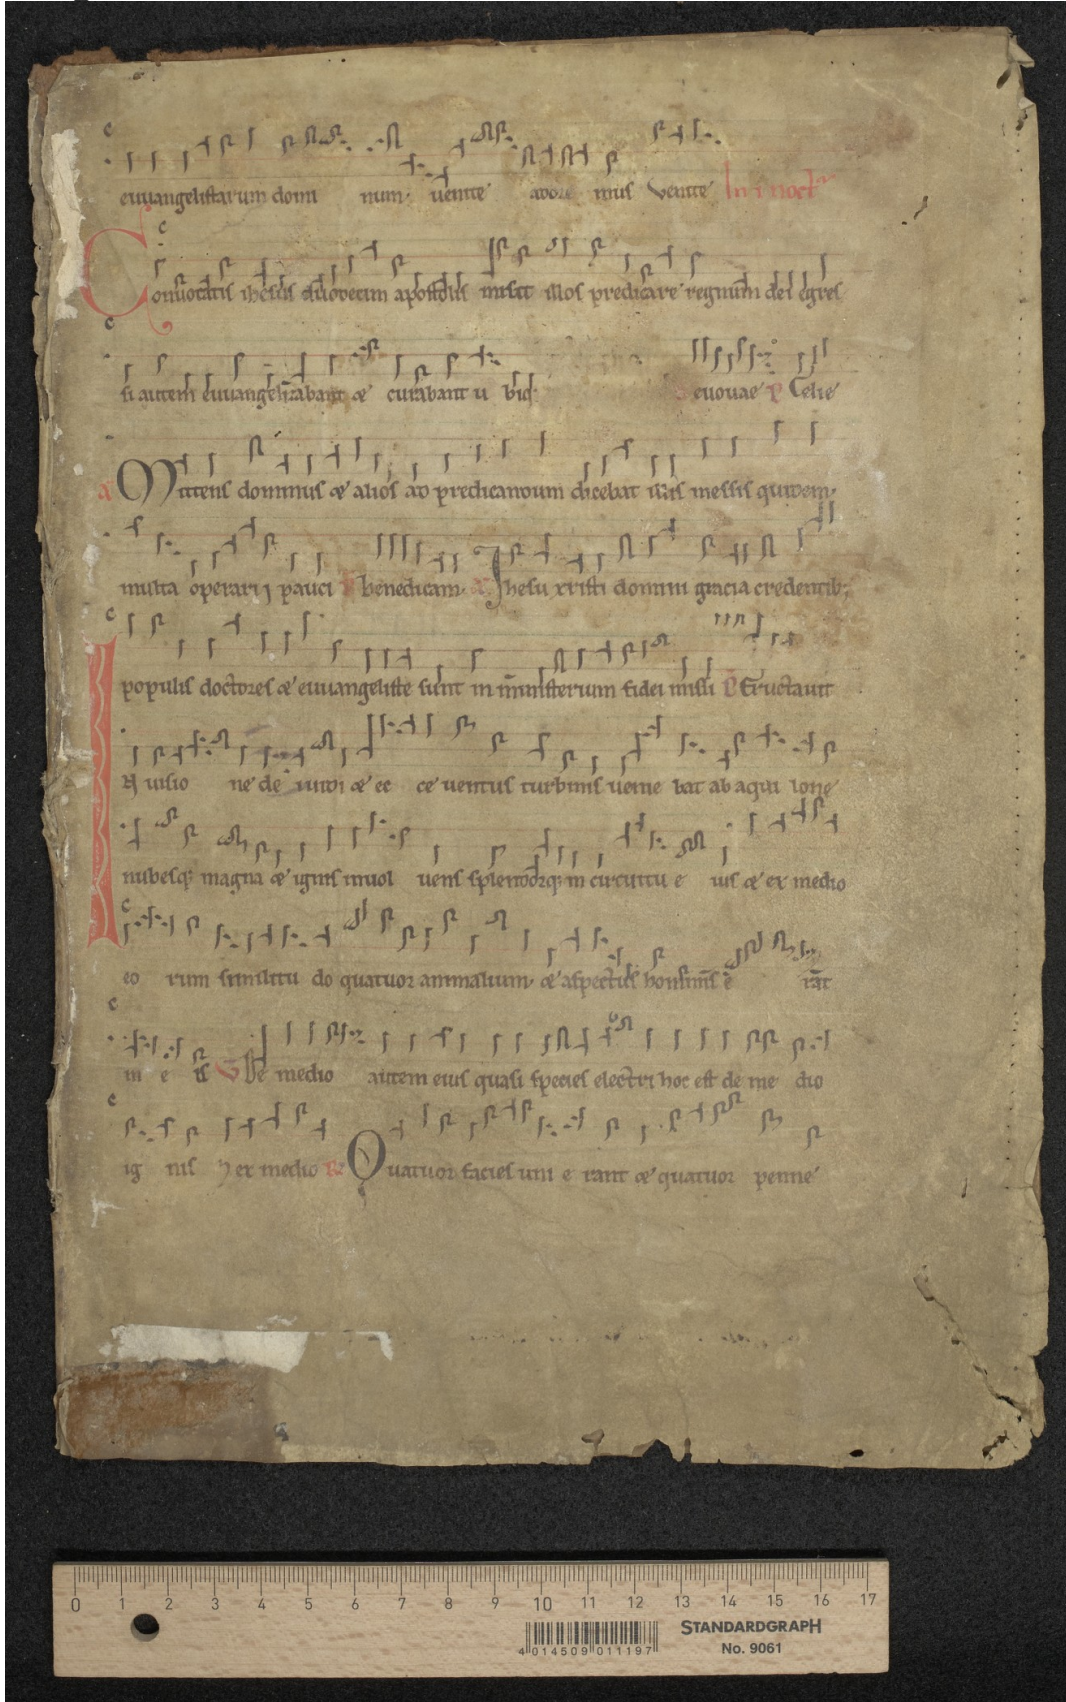 euuangelistarum domi num. uenite adore mus Venite In i noct
Conuocatis ihesus duodecim apostolis misit illos predicare regnum dei egres
si autem euuangelizabant & curabant u biq; euouae P Celi e
a Mittens dominus & alios ad predicandum dicebat illis messis quidem.
multa operarij pauci P benedicam. a Ihesu xristi domini gracia credentib;
populis doctores & euuangeliste sunt in ministerium fidei missi P Eructauit
IN uisio ne de iuidi & ec ce uentus turbinis uenie bat ab aqui lone
nubesq; magna & ignis inuol uens splendorq; in circuitu e ius & ex medio
eo rum similitu do quatuor animalium. & aspectus hominis e rat
in e is V De medio autem eius quasi species electri hoc est de me dio
ig nis & ex medio R Quatuor facies uni e rant & quatuor penne
0 1 2 3 4 5 6 7 8 9 10 11 12 13 14 15 16 17
4 014509 011197
STANDARDGRAPH
No. 9061